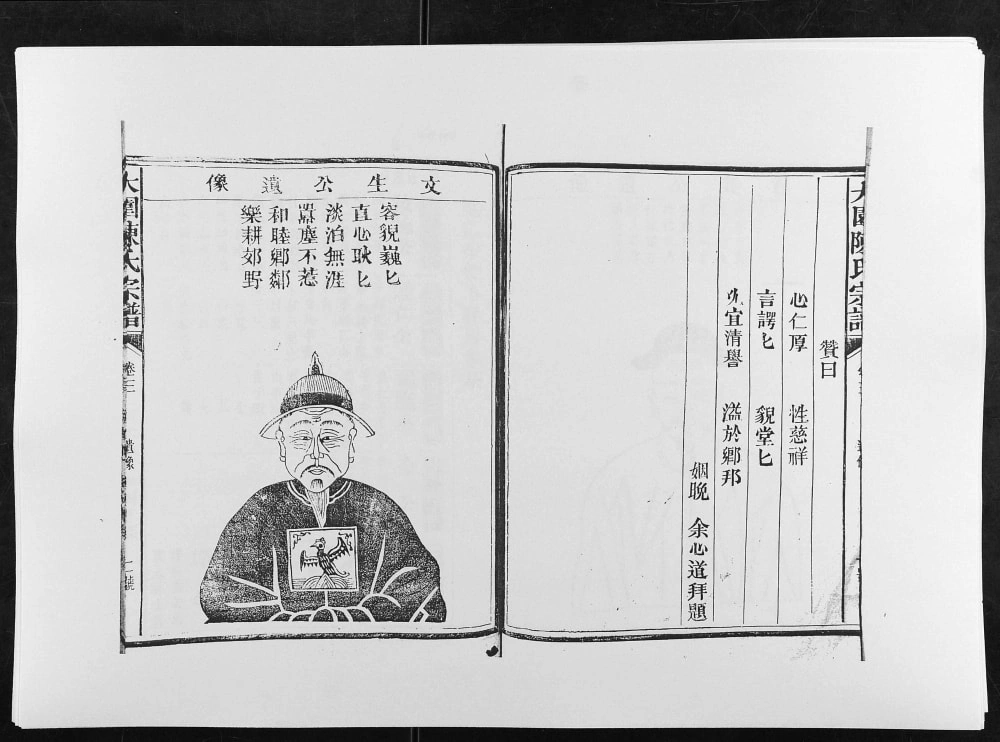 贊曰
心仁厚 性慈祥
言諤匕 貌堂匕
宜清譽 溢於鄉邦
姻晚 余心道拜題
文生公遺像
容貌巍匕
直心耿匕
淡泊無涯
囂塵不惹
和睦鄉鄰
樂耕郊野
陳氏宗譜
卷三
遺像